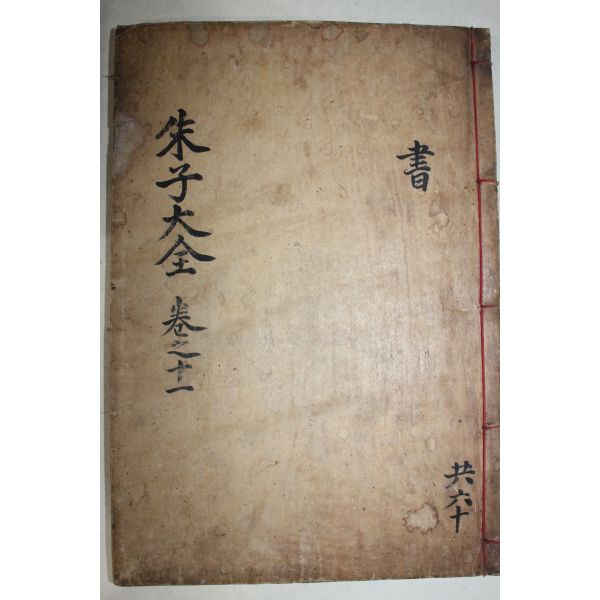 書
共六十
朱子大全 卷之十一